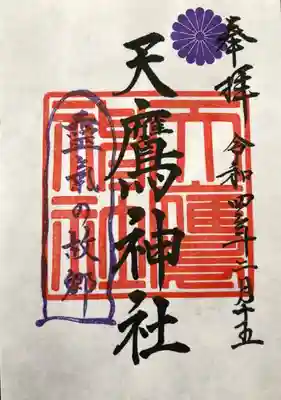 奉拝 令和四年二月十五
天鷹神社
天鷹神社
靈氣の故郷